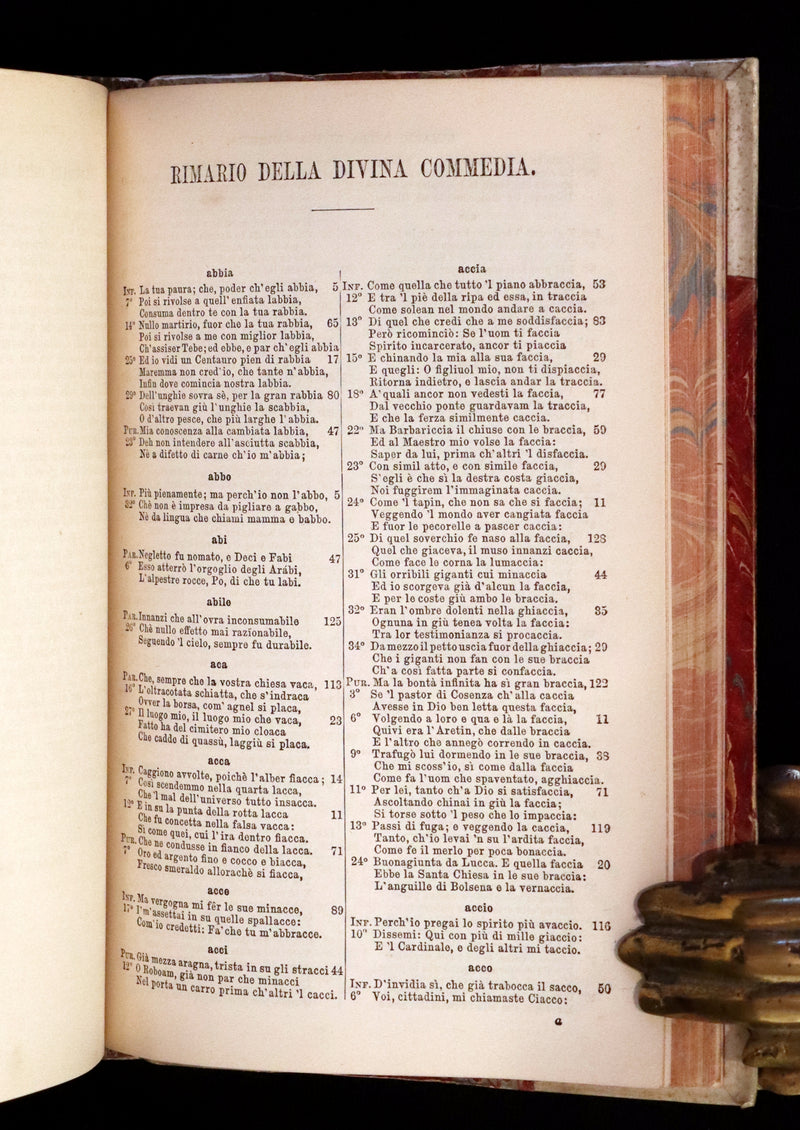 RIMARIO DELLA DIVINA COMMEDIA.
abbia
INF. La tua paura; che, poder ch'egli abbia, 5
7° Poi si rivolse a quell' enfiata labbia,
Consuma dentro te con la tua rabbia.
14° Nullo martirio, fuor che la tua rabbia, 65
Poi si rivolse a me con miglior labbia,
Ch'assiser Tebe; ed ebbe, e par ch'egli abbia
25° Ed io vidi un Centauro pien di rabbia 17
Maremma non cred'io, che tante n'abbia,
Infin dove comincia nostra labbia.
29° Dell'unghie sovra sè, per la gran rabbia 80
Così traevan giù l'unghie la scabbia,
O d'altro pesce, che più larghe l'abbia.
PUR. Mia conoscenza alla cambiata labbia, 47
23° Deh non intendere all'asciutta scabbia,
Nè a difetto di carne ch'io m'abbia;
abbo
INF. Più pienamente; ma perch'io non l'abbo, 5
32° Chè non è impresa da pigliare a gabbo,
Nè da lingua che chiami mamma e babbo.
abi
PAR. Negletto fu nomato, e Deci e Fabi 47
6° Esso atterrò l'orgoglio degli Arábi,
L'alpestre rocce, Po, di che tu labi.
abile
PAR. Innanzi che all'ovra inconsumabile 125
26° Chè nullo effetto mai razionabile,
Seguendo 'l cielo, sempre fu durabile.
aca
PAR. Che, sempre che la vostra chiesa vaca, 113
16° L'oltracotata schiatta, che s'indraca
Ovver la borsa, com' agnel si placa,
27° Il luogo mio, il luogo mio che vaca, 23
Fatto ha del cimitero mio cloaca
Che caddo di quassù, laggiù si placa.
acca
INF. Caggiono avvolte, poichè l'alber fiacca; 14
7° Così scendemmo nella quarta lacca,
Che 'l mal dell'universo tutto insacca.
12° E in su la punta della rotta lacca 11
Che fu concetta nella falsa vacca:
Sì come quei, cui l'ira dentro fiacca.
PUR. Che ne condusse in fianco della lacca. 71
7° Oro ed argento fino e cocco e biacca,
Fresco smeraldo allorachè si fiacca,
acce
INF. Ma vergogna mi fêr le sue minacce, 89
17° I'm'assettai in su quelle spallacce:
Com'io credetti: Fa'che tu m'abbracce.
acci
PUR. Già mezza aragna, trista in su gli stracci 44
12° O Roboam, già non par che minacci
Nel porta un carro prima ch'altri 'l cacci.
accia
INF. Come quella che tutto 'l piano abbraccia, 53
12° E tra 'l piè della ripa ed essa, in traccia
Come solean nel mondo andare a caccia.
13° Di quel che credi che a me soddisfaccia; 83
Però ricominciò: Se l'uom ti faccia
Spirito incarcerato, ancor ti piaccia
15° E chinando la mia alla sua faccia, 29
E quegli: O figliuol mio, non ti dispiaccia,
Ritorna indietro, e lascia andar la traccia.
18° A' quali ancor non vedesti la faccia, 77
Dal vecchio ponte guardavam la traccia,
E che la ferza similmente caccia.
22° Ma Barbariccia il chiuse con le braccia, 59
Ed al Maestro mio volse la faccia:
Saper da lui, prima ch'altri 'l disfaccia.
23° Con simil atto, e con simile faccia, 29
S'egli è che sì la destra costa giaccia,
Noi fuggirem l'immaginata caccia.
24° Come 'l tapin, che non sa che si faccia; 11
Veggendo 'l mondo aver cangiata faccia
E fuor le pecorelle a pascer caccia:
25° Di quel soverchio fe naso alla faccia, 128
Quel che giaceva, il muso innanzi caccia,
Come face le corna la lumaccia:
31° Gli orribili giganti cui minaccia 44
Ed io scorgeva già d'alcun la faccia,
E per le coste giù ambo le braccia.
32° Eran l'ombre dolenti nella ghiaccia, 35
Ognuna in giù tenea volta la faccia:
Tra lor testimonianza si procaccia.
34° Da mezzo il petto uscia fuor della ghiaccia; 29
Che i giganti non fan con le sue braccia
Ch'a così fatta parte si confaccia.
PUR. Ma la bontà infinita ha sì gran braccia, 122
3° Se 'l pastor di Cosenza ch'alla caccia
Avesse in Dio ben letta questa faccia,
6° Volgendo a loro e qua e là la faccia, 11
Quivi era l'Aretin, che dalle braccia
E l'altro che annegò correndo in caccia.
9° Trafugò lui dormendo in le sue braccia, 38
Che mi scoss'io, sì come dalla faccia
Come fa l'uom che spaventato, agghiaccia.
11° Per lei, tanto ch'a Dio si satisfaccia, 71
Ascoltando chinai in giù la faccia;
Si torse sotto 'l peso che lo impaccia:
13° Passi di fuga; e veggendo la caccia, 119
Tanto, ch'io levai 'n su l'ardita faccia,
Come fe il merlo per poca bonaccia.
24° Buonagiunta da Lucca. E quella faccia 20
Ebbe la Santa Chiesa in le sue braccia:
L'anguille di Bolsena e la vernaccia.
accio
INF. Perch'io pregai lo spirito più avaccio. 116
10° Dissemi: Qui con più di mille giaccio:
E 'l Cardinale, e degli altri mi taccio.
acco
INF. D'invidia sì, che già trabocca il sacco, 50
6° Voi, cittadini, mi chiamaste Ciacco:
a